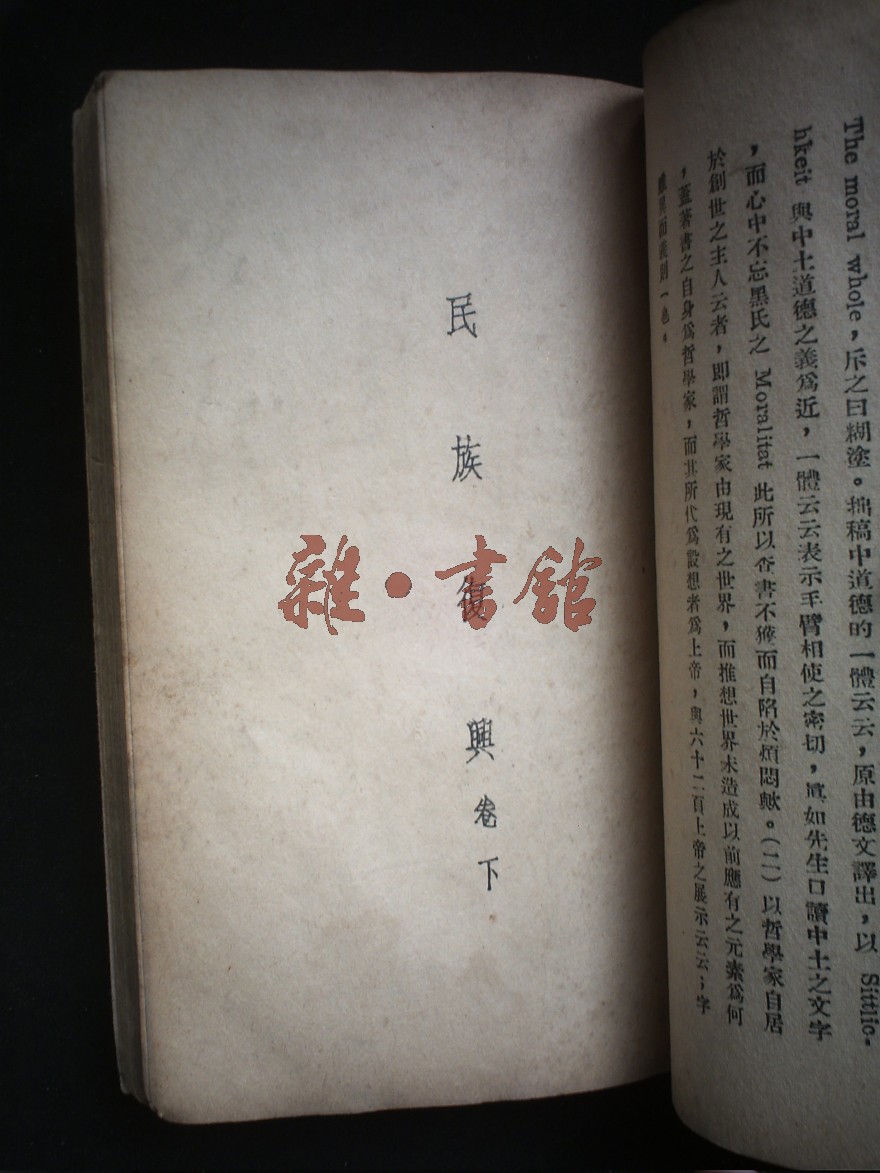 The moral whole，斥之曰糊塗。拙稿中道德的一體云云，原由德文譯出，以 Sittlic-
hkeit 與中土道德之義爲近，一體云云表示手臂相使之密切，眞如先生口讀中土之文字
，而心中不忘黑氏之 Moralitat 此所以查書不獲而自陷於煩悶歟。（二）以哲學家自居
於創世之主人云者，卽謂哲學家由現有之世界，而推想世界未造成以前應有之元素爲何
，蓋著書之自身爲哲學家，而其所代爲設想者爲上帝，與六十二頁上帝之展示云云；字
異而義則一也。
民族復興 卷下
雜·書館